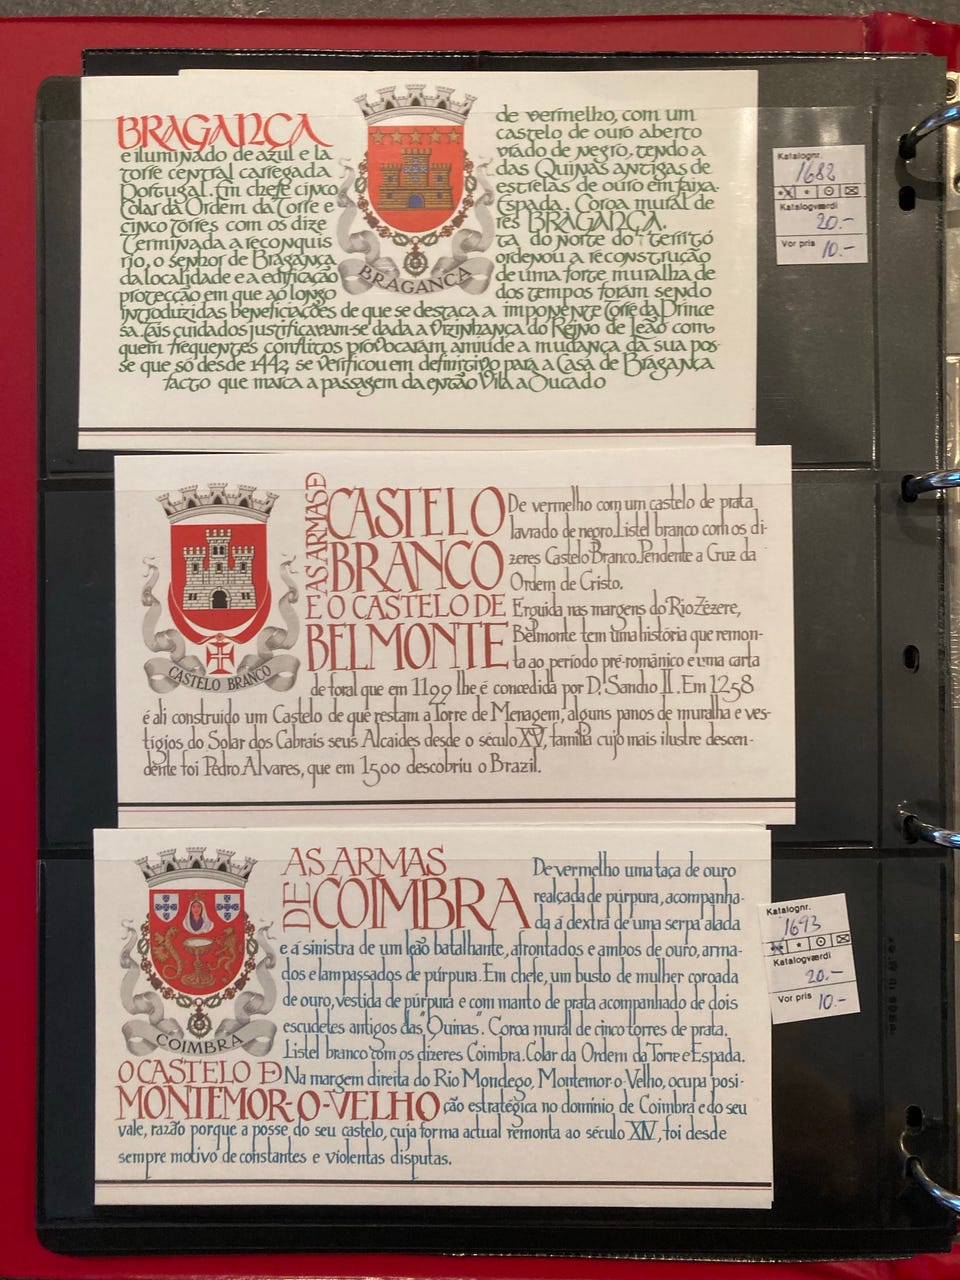 BRAGANÇA
e iluminado de azul e la
torre central carregada
Portugal. Em chefe cinco
Colar da Ordem da Torre e
cinco torres com os dize
Terminada a reconquis
rio, o senhor de Bragança
da localidade e a edificação
protecção em que ao longo
BRAGANÇA
de vermelho, com um
castelo de ouro aberto
vrado de negro, tendo a
das Quinas antigas de
estrelas de ouro em faixa.
Espada. Coroa mural de
res BRAGANÇA.
ta do norte do territó
ordenou a reconstrução
de uma forte muralha de
dos tempos foram sendo
introduzidas beneficiações de que se destaca a imponente Torre da Prince
sa. Tais cuidados justificavam-se dada a vizinhança do Reino de Leão com
quem frequentes conflitos provocaram amiude a mudança da sua pos-
se que só desde 1442 se verificou em definitivo para a Casa de Bragança
facto que marca a passagem da então Vila a Ducado
Katalognr.
1682
Katalogværdi
20.-
Vor pris 10.-
AS ARMAS D
CASTELO
BRANCO
E O CASTELO DE
BELMONTE
CASTELO BRANCO
De vermelho com um castelo de prata
lavrado de negro. Listel branco com os di-
zeres Castelo Branco. Pendente a Cruz da
Ordem de Cristo.
Erguida nas margens do Rio Zêzere,
Belmonte tem uma história que remon-
ta ao período pré-românico e uma carta
de foral que em 1199 lhe é concedida por D. Sancho II. Em 1258
é ali construído um Castelo de que restam a Torre de Menagem, alguns panos de muralha e ves-
tígios do Solar dos Cabrais seus Alcaides desde o século XV, família cujo mais ilustre descen-
dente foi Pedro Alvares, que em 1500 descobriu o Brazil.
AS ARMAS
DE COIMBRA
COIMBRA
De vermelho uma taça de ouro
realçada de púrpura, acompanha-
da á dextra de uma serpa alada
e á sinistra de um leão batalhante, afrontados e ambos de ouro, arma-
dos e lampassados de púrpura. Em chefe, um busto de mulher coroada
de ouro, vestida de púrpura e com manto de prata acompanhado de dois
escudetes antigos das "Quinas". Coroa mural de cinco torres de prata.
Listel branco com os dizeres Coimbra. Colar da Ordem da Torre e Espada.
O CASTELO D
MONTEMOR-O-VELHO
Na margem direita do Rio Mondego, Montemor-o-Velho, ocupa posi-
ção estratégica no domínio de Coimbra e do seu
vale, razão porque a posse do seu castelo, cuja forma actual remonta ao século XIV, foi desde
sempre motivo de constantes e violentas disputas.
Katalognr.
1693
Katalogværdi
20.-
Vor pris 10.-